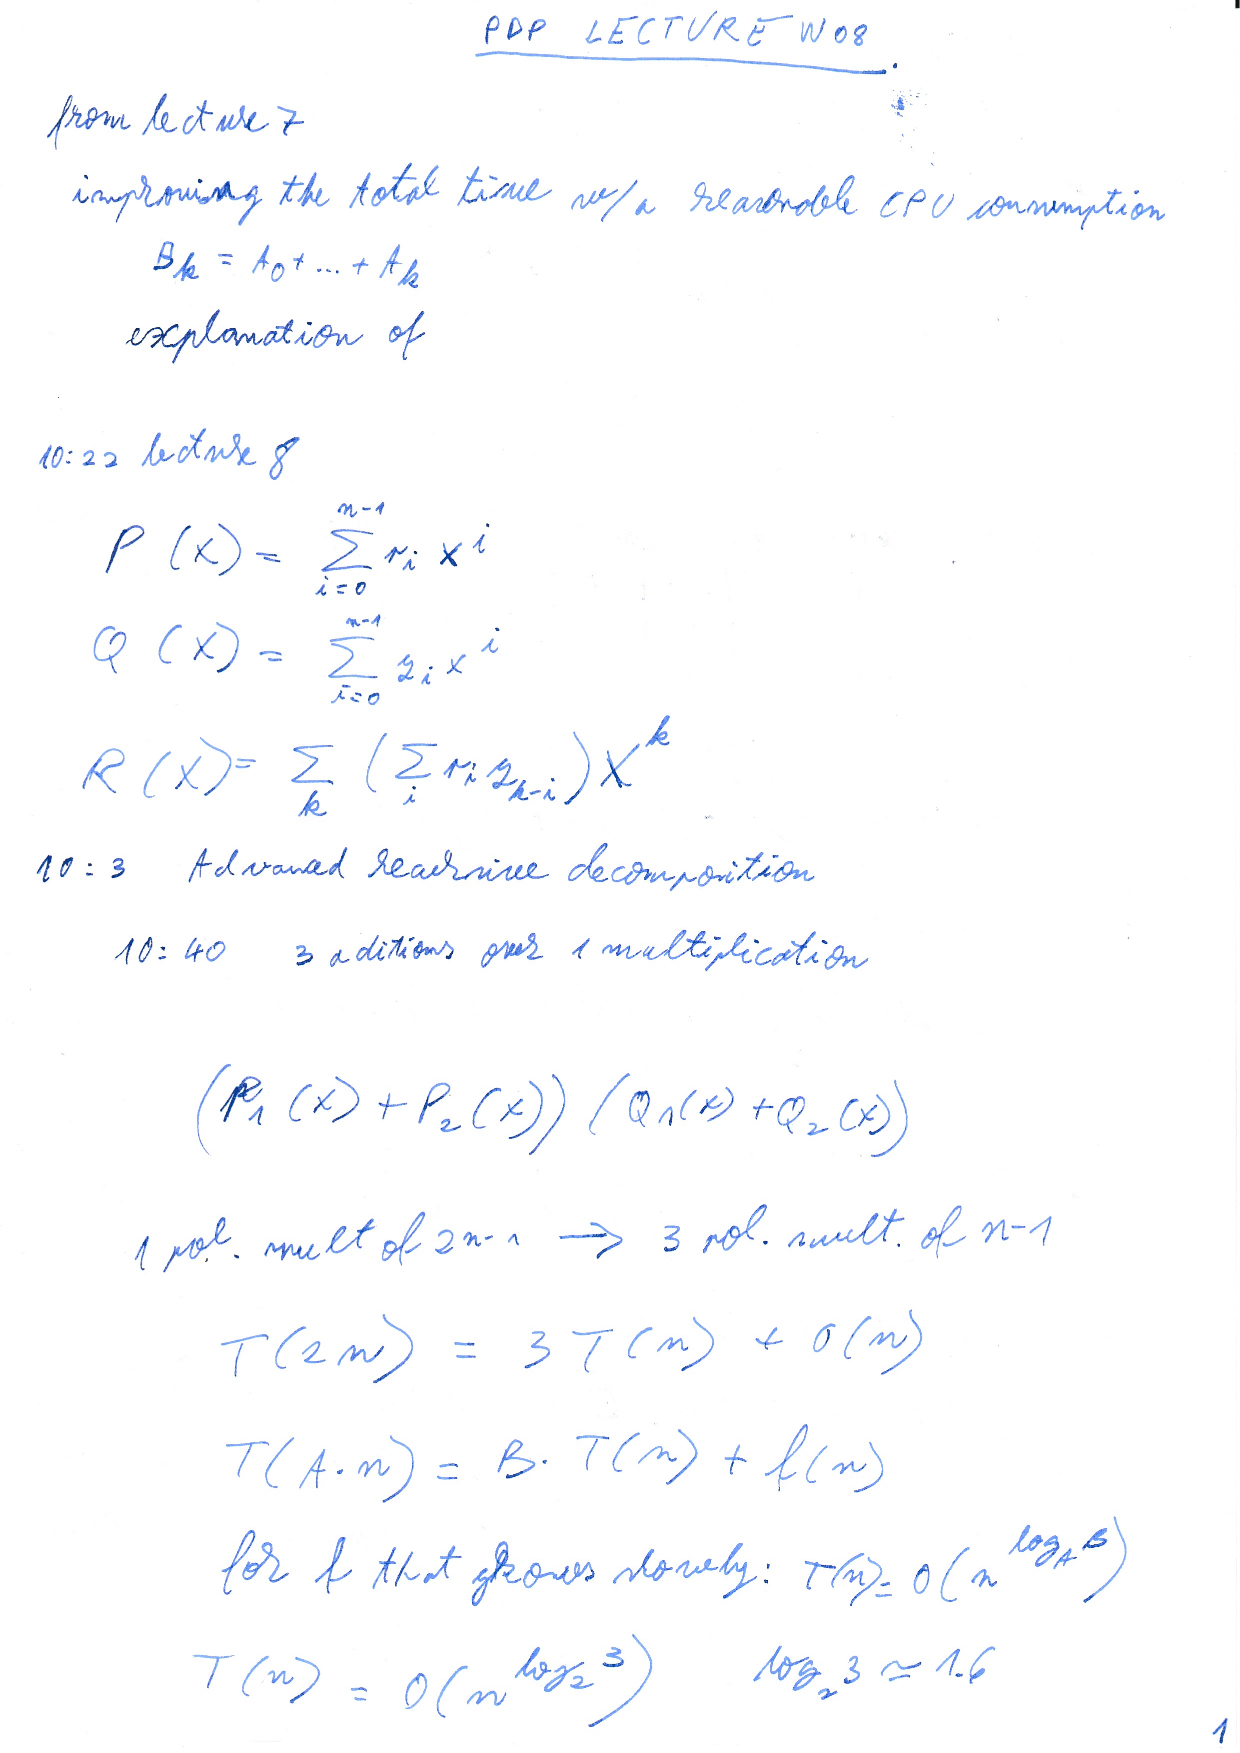 PDP LECTURE W08
from lecture 7
improving the total time w/a reasonable CPU consumption
B_k = A_0 + ... + A_k
explanation of
10:22 lecture 8
P(X) = ∑_{i=0}^{n-1} r_i x^i
Q(X) = ∑_{i=0}^{n-1} q_i x^i
R(X) = ∑_k (∑_i r_i q_{k-i}) X^k
10:3 Advanced recursive decomposition
10:40 3 aditions over 1 multiplication
(P_1(X) + P_2(X)) (Q_1(X) + Q_2(X))
1 pol. mult of 2n-1 → 3 pol. mult. of n-1
T(2n) = 3T(n) + O(n)
T(A·n) = B·T(n) + f(n)
for f that grows slowely: T(n) = O(n^{log_A B})
T(n) = O(n^{log_2 3}) log_2 3 ≃ 1.6
1